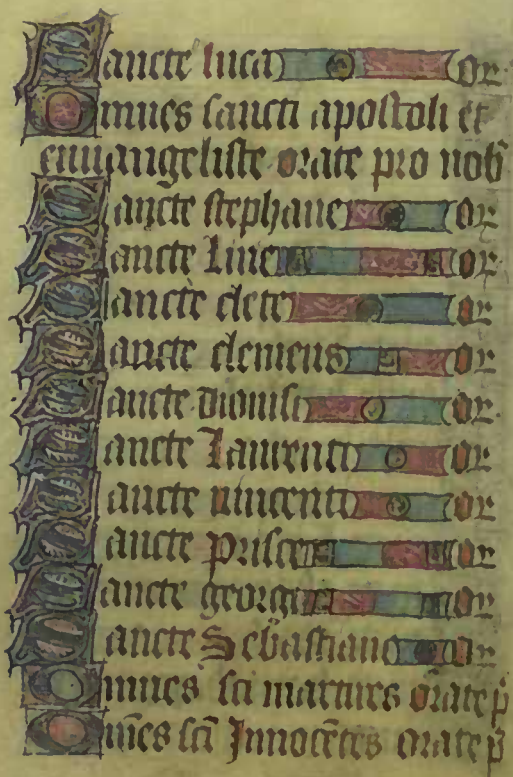 Sancte luca or
Omnes sancti apostoli et
euuangeliste orate pro nob
Sancte stephane or
Sancte Line or
Sancte clete or
Sancte clemens or
Sancte dionisi or
Sancte Laurenti or
Sancte vincenti or
Sancte prisce or
Sancte georgi or
Sancte Sebastiane or
Omnes sci martires orate p
Omēs scī Innocētes orate p